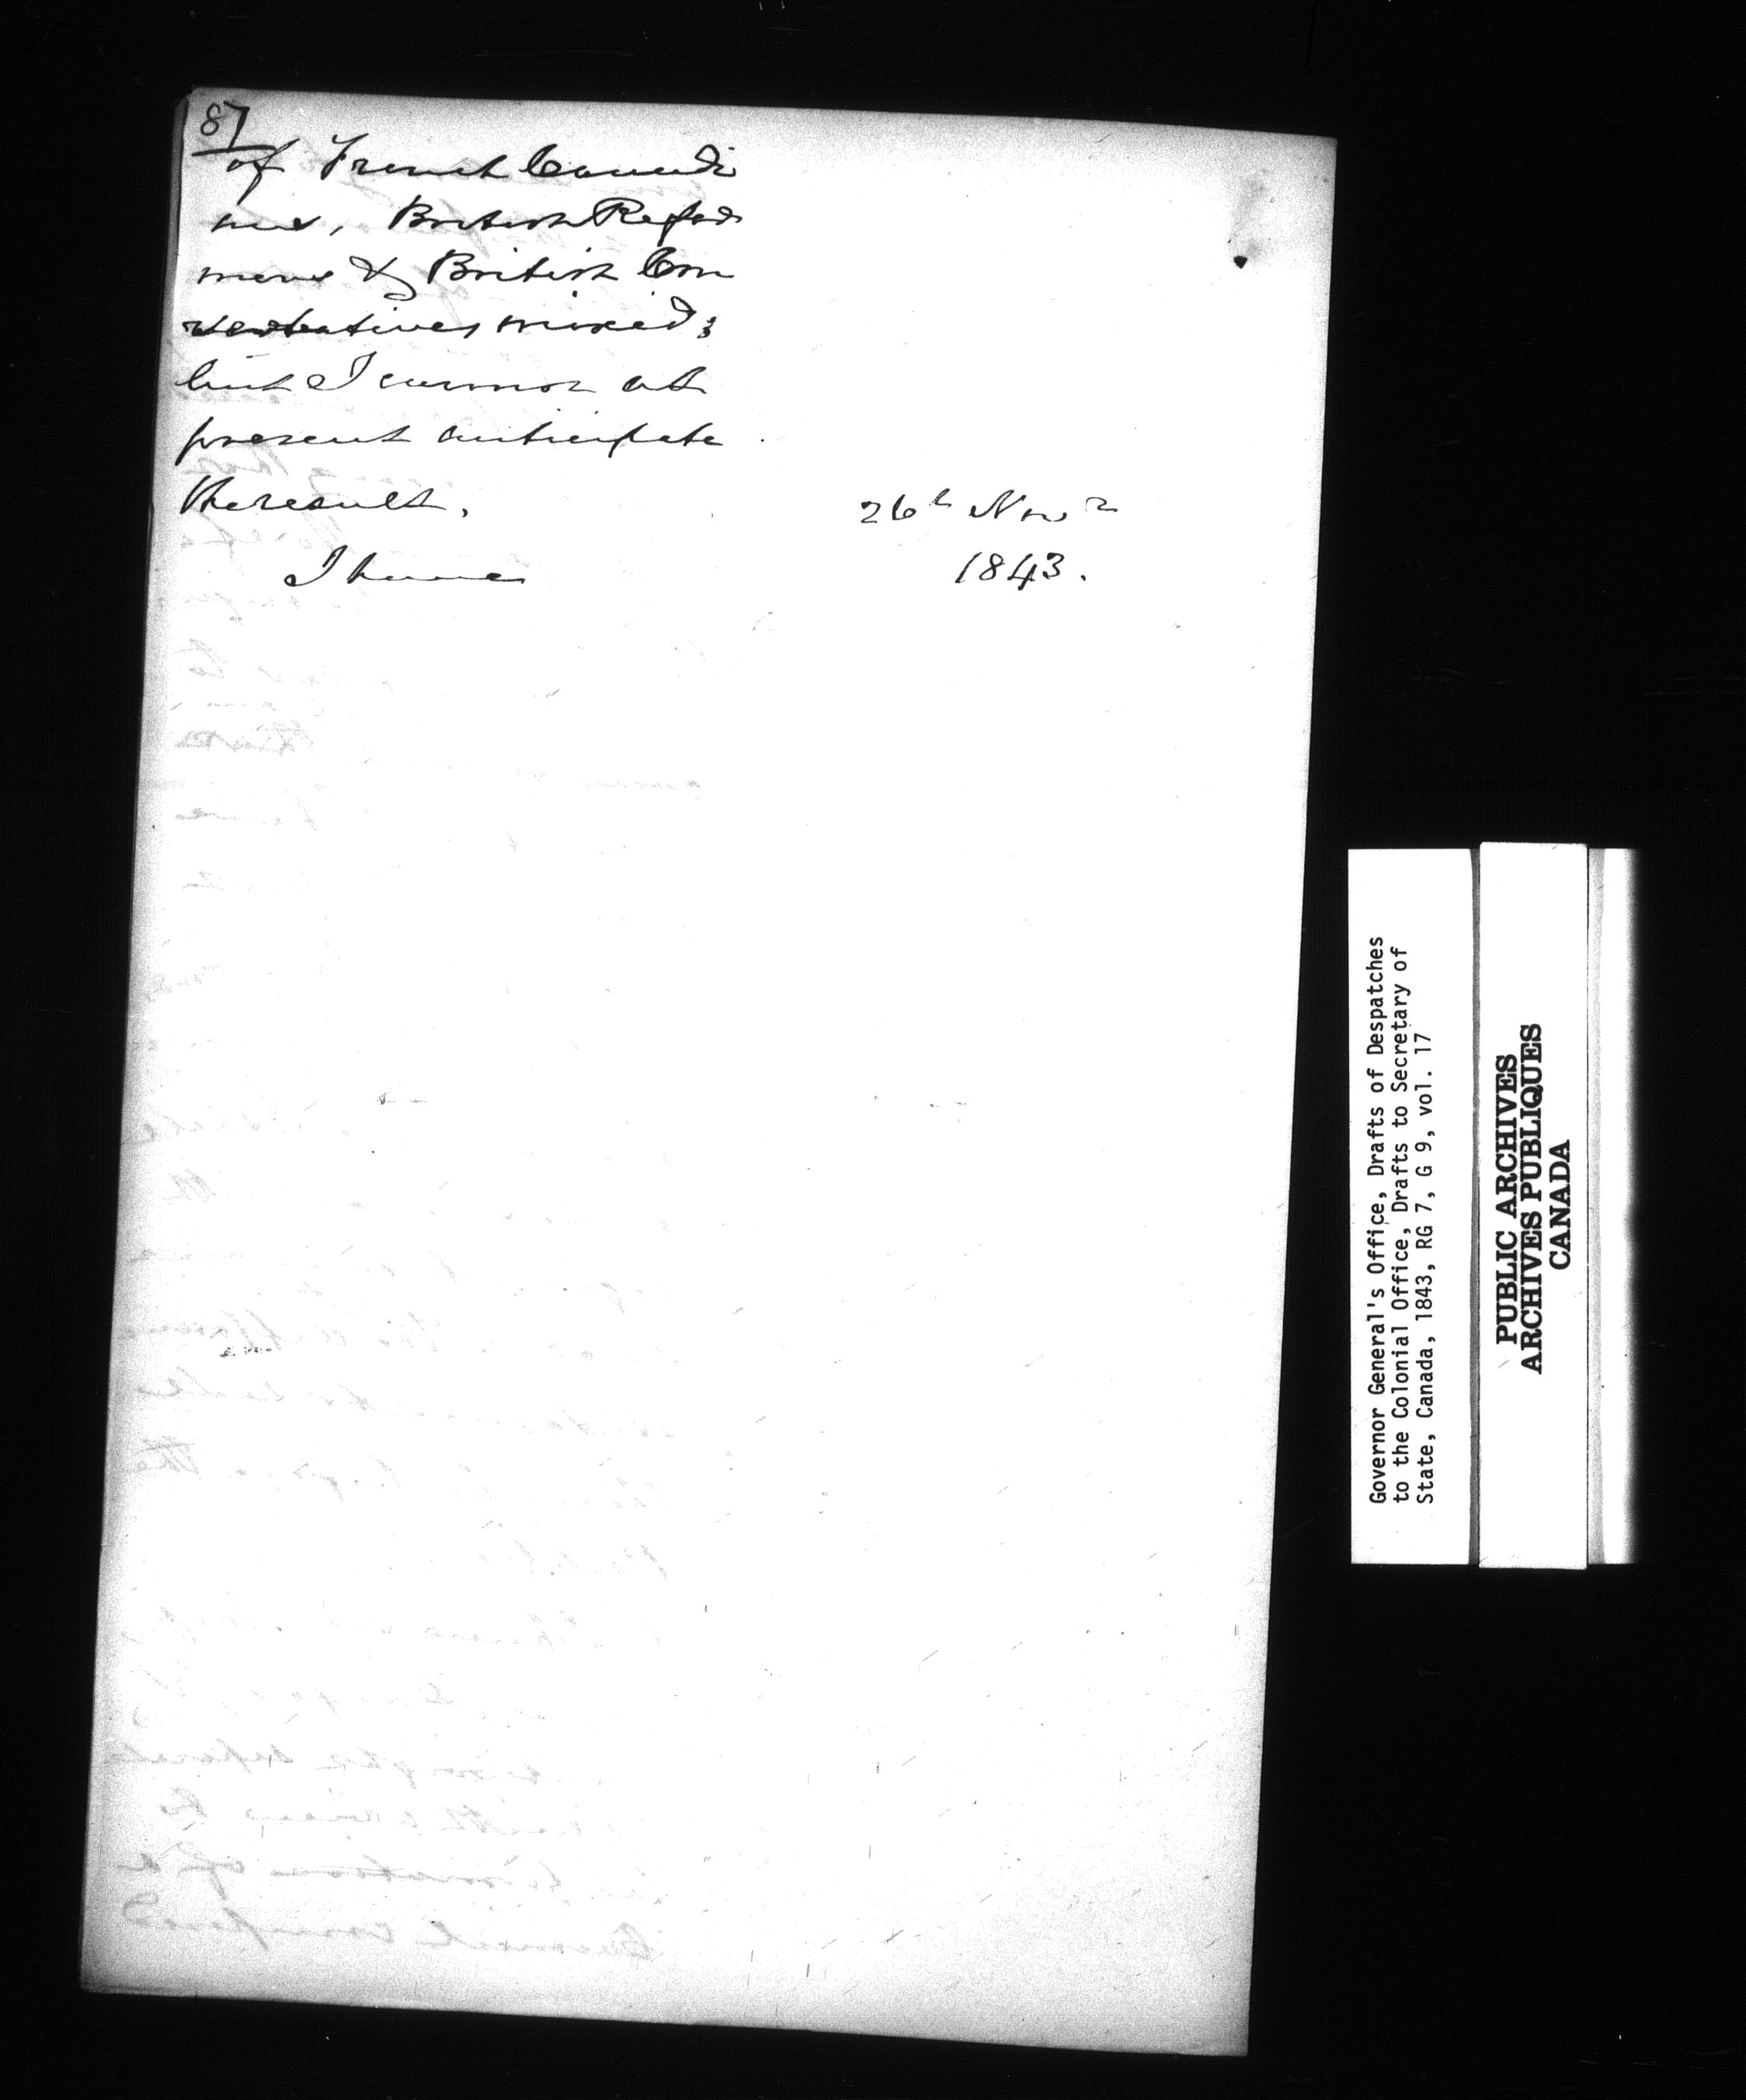 87
of French Canadi
ans, British Refor
mers & British Con
servatives mixed;
but I cannot at
present anticipate
the result.
I have
26th Novr
1843.
Governor General's Office, Drafts of Despatches
to the Colonial Office, Drafts to Secretary of
State, Canada, 1843, RG 7, G 9, vol. 17
PUBLIC ARCHIVES
ARCHIVES PUBLIQUES
CANADA